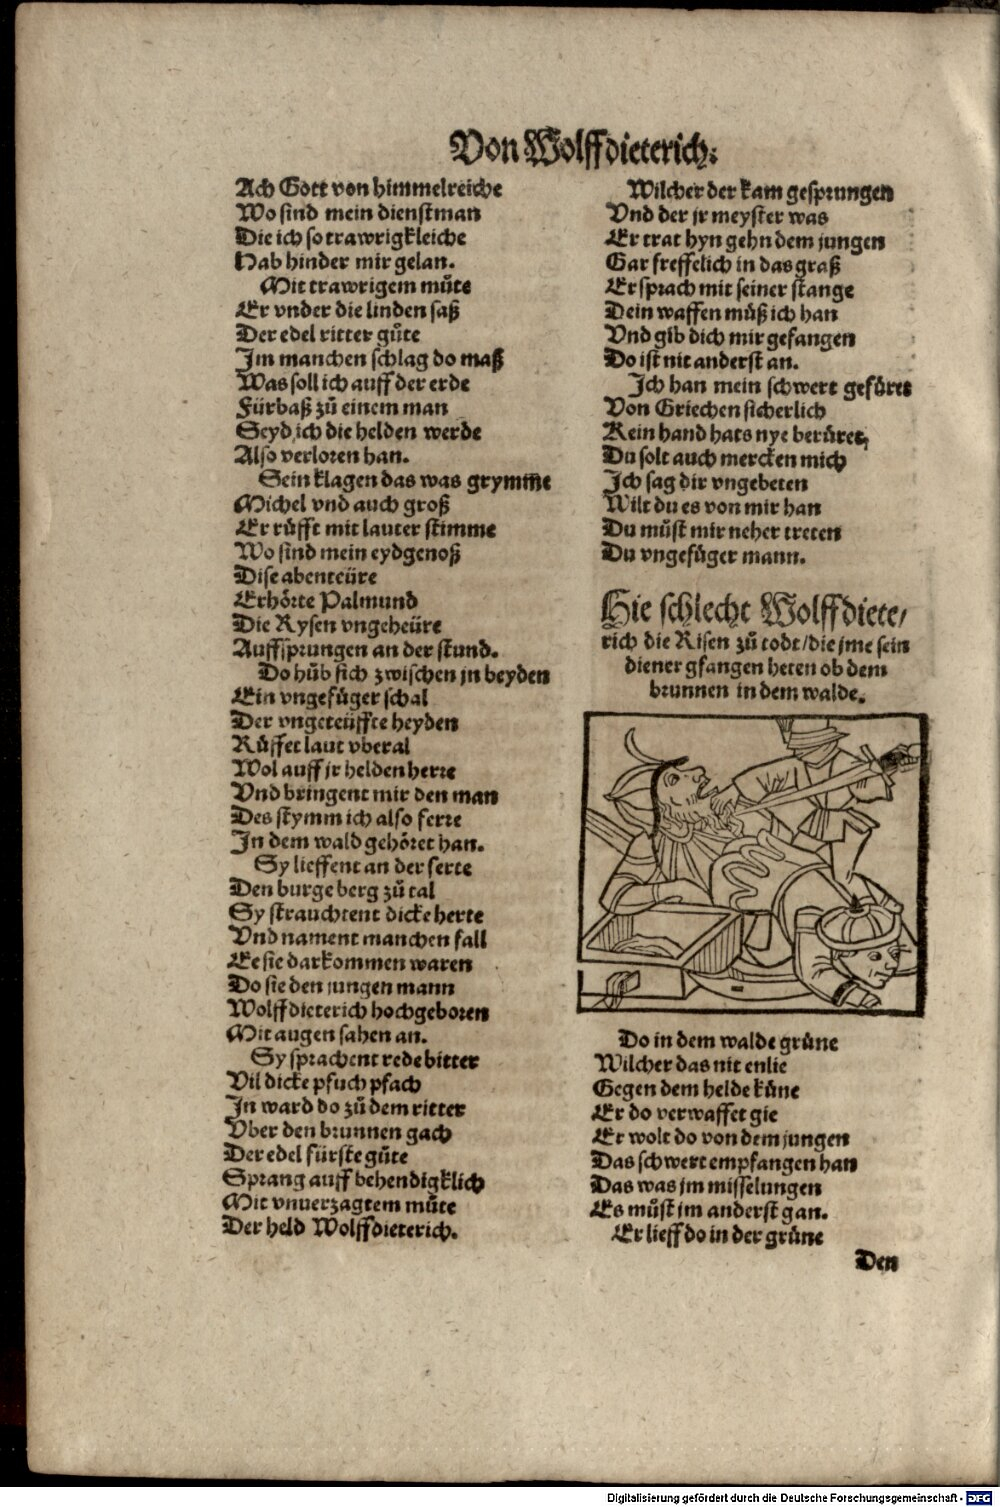 Von Wolffdieterich:
Ach Gott von himmelreiche
Wo sind mein dienstman
Die ich so trawrigkleiche
Hab hinder mir gelan.
Mit trawrigem můte
Er vnder die linden saß
Der edel ritter gůte
Im manchen schlag do maß
Was soll ich auff der erde
Fürbaß zů einem man
Seyd ich die helden werde
Also verloren han.
Sein klagen das was grymme
Michel vnd auch groß
Er růfft mit lauter stimme
Wo sind mein eydgenoß
Dise abenteüre
Erhörte Palmund
Die Rysen vngeheüre
Auffsprungen an der stund.
Do hůb sich zwischen jn beyden
Ein vngefüger schal
Der vngeteüffte heyden
Růffet laut vberal
Wol auff jr helden herre
Vnd bringent mir den man
Des stymm ich also ferre
In dem wald gehöret han.
Sy lieffent an der ferte
Den burge berg zů tal
Sy strauchtent dicke herte
Vnd nament manchen fall
Ee sie darkommen waren
Do sie den jungen mann
Wolffdieterich hochgeboren
Mit augen sahen an.
Sy sprachent rede bitter
Vil dicke pfuch pfach
In ward do zů dem ritter
Vber den brunnen gach
Der edel fürste gůte
Sprang auff behendigklich
Mit vnuerzagtem můte
Der held Wolffdieterich.
Wilcher der kam gesprungen
Vnd der jr meyster was
Er trat hyn gehn dem jungen
Gar freffelich in das graß
Er sprach mit seiner stange
Dein waffen můß ich han
Vnd gib dich mir gefangen
Do ist nit anderst an.
Ich han mein schwert gefüret
Von Griechen sicherlich
Kein hand hats nye berüret,
Du solt auch mercken mich
Ich sag dir vngebeten
Wilt du es von mir han
Du můst mir neher treten
Du vngefüger mann.
Hie schlecht Wolffdiete/
rich die Risen zů todt/die jme sein
diener gfangen heten ob dem
brunnen in dem walde.
Do in dem walde grüne
Wilcher das nit enlie
Gegen dem helde küne
Er do verwaffet gie
Er wolt do von dem jungen
Das schwert empfangen han
Das was jm misselungen
Es můst jm anderst gan.
Er lieff do in der grüne
Den
Digitalisierung gefördert durch die Deutsche Forschungsgemeinschaft - DFG